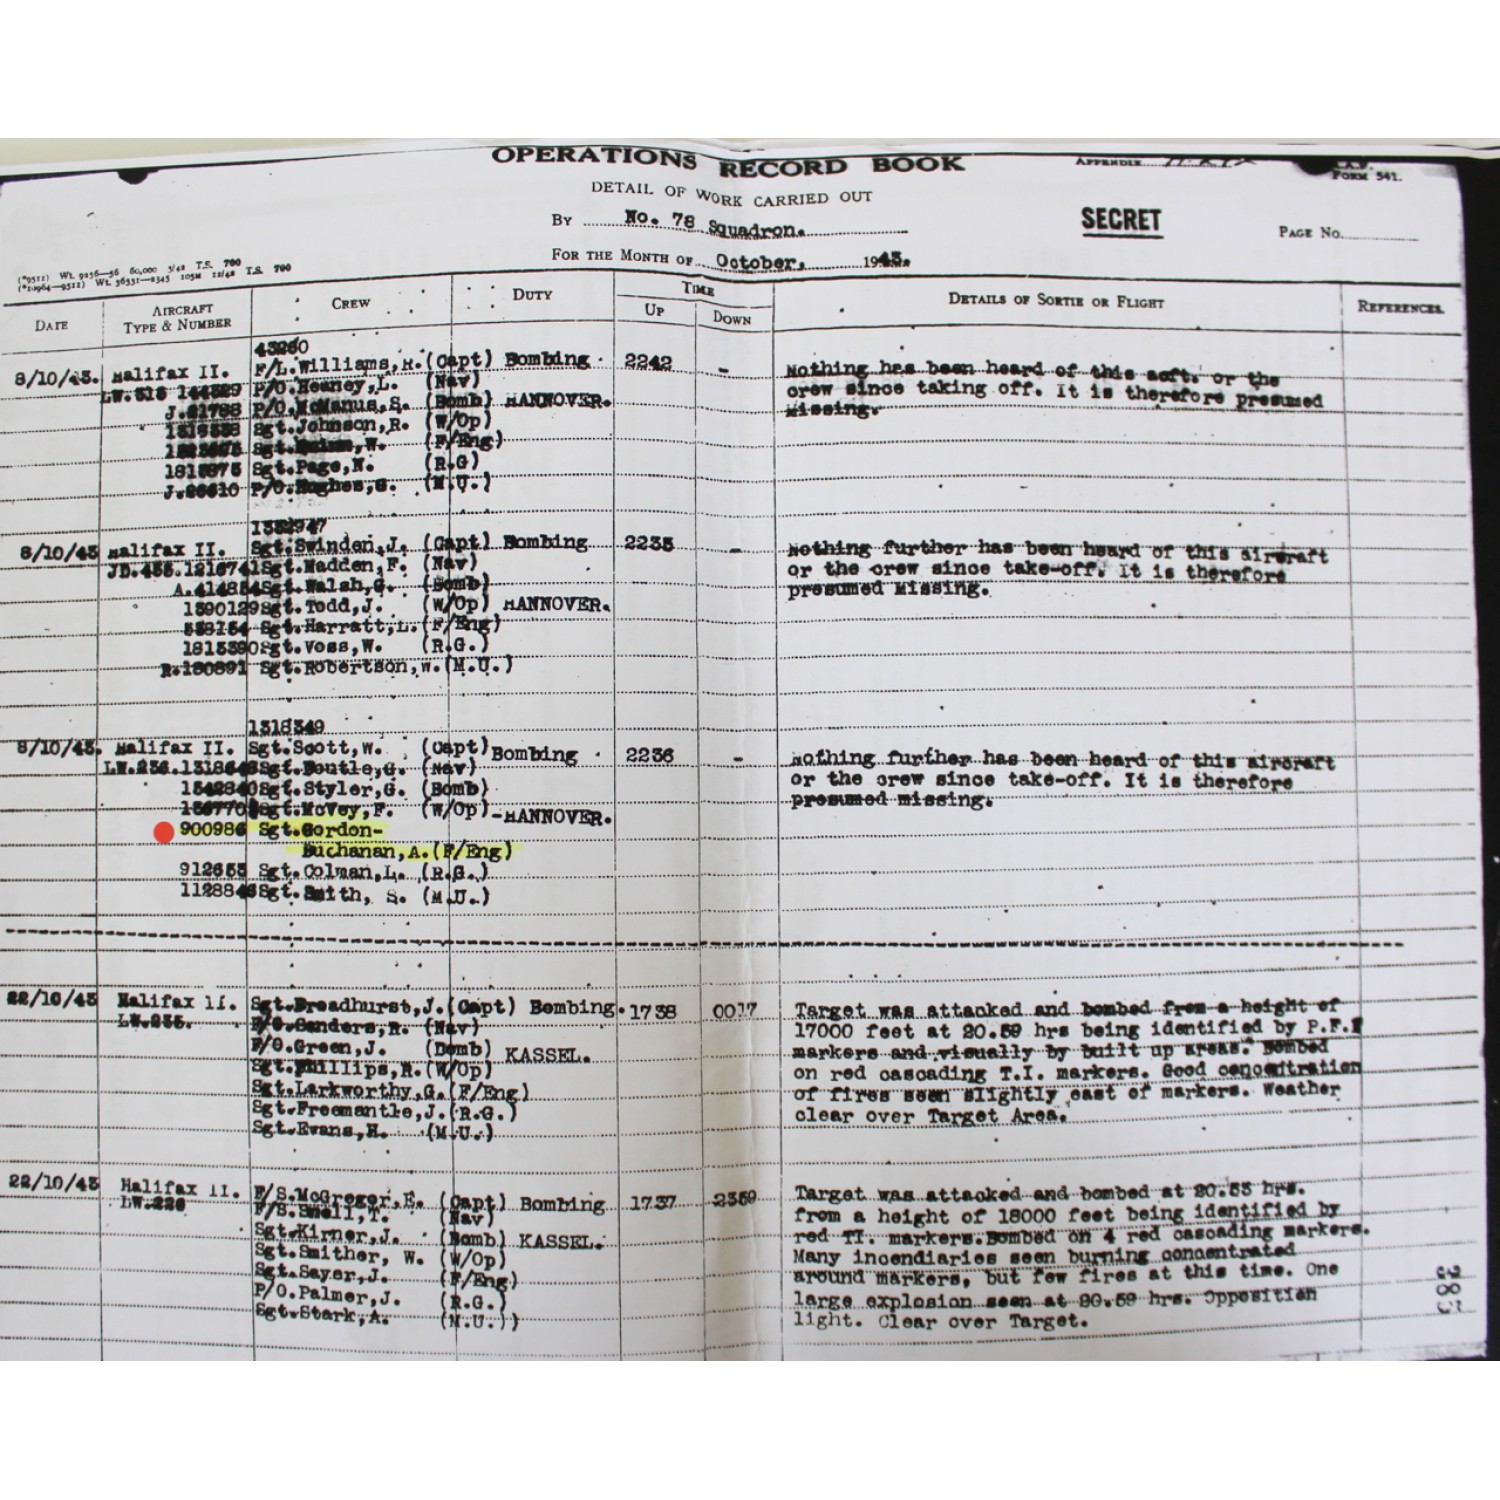 OPERATIONS RECORD BOOK
APPENDIX
FORM 541.
DETAIL OF WORK CARRIED OUT
By No. 78 Squadron.
SECRET
PAGE No.
FOR THE MONTH OF October, 1943.
(*9511) Wt. 9256—56 60,000 5/42 T.S. 700
T.S. 700
DATE AIRCRAFT TYPE & NUMBER CREW DUTY TIME UP DOWN DETAILS OF SORTIE OR FLIGHT REFERENCES.
8/10/43. Halifax II. F/L.Williams,R.(Capt) Bombing 2242 - Nothing has been heard of this acft. or the
P/O.Heaney,L. (Nav) crew since taking off. It is therefore presumed
P/O.McManus,S. (Bomb) HANNOVER. missing.
Sgt.Johnson,R. (W/Op)
W. (F/Eng)
Sgt.Page,N. (R.G)
P/O.Hughes,G. (M.U.)
8/10/43 Halifax II. Sgt.Swinden,J. (Capt) Bombing 2235 - Nothing further has been heard of this aircraft
Sgt.Madden,F. (Nav) or the crew since take-off. It is therefore
Sgt.Walsh,G. (Bomb) presumed missing.
1390129 Sgt.Todd,J. (W/Op) HANNOVER.
Sgt.Harratt,L.(F/Eng)
1813390 Sgt.Voss,W. (R.G.)
R.180891 Sgt.Robertson,W.(M.U.)
1318349
8/10/43. Halifax II. Sgt.Scott,W. (Capt) Bombing 2236 - Nothing further has been heard of this aircraft
LW.236. Sgt.Doutle,G. (Nav) or the crew since take-off. It is therefore
Sgt.Styler,G. (Bomb) presumed missing.
Sgt.McVey,F. (W/Op)-HANNOVER.
900986 Sgt.Gordon-
Buchanan,A.(F/Eng)
912653 Sgt.Colman,L. (R.G.)
Sgt.Smith, S. (M.U.)
22/10/43 Halifax II. Sgt.Broadhurst,J.(Capt) Bombing. 1738 0017 Target was attacked and bombed from a height of
LW.235. Sanders,R. (Nav) 17000 feet at 20.59 hrs being identified by P.F.F
F/O.Green,J. (Bomb) KASSEL. markers and visually by built up areas. Bombed
Sgt.Phillips,R.(W/Op) on red cascading T.I. markers. Good concentration
Sgt.Larkworthy,G.(F/Eng) of fires seen slightly east of markers. Weather
Sgt.Freemantle,J.(R.G.) clear over Target Area.
Sgt.Evans,H. (M.U.)
22/10/43 Halifax II. F/S.McGregor,E. (Capt) Bombing 1737 2359 Target was attacked and bombed at 20.53 hrs.
F/S.Snell,T. (Nav) from a height of 18000 feet being identified by
Sgt.Kirner,J. (Bomb) KASSEL. red TI. markers.Bombed on 4 red cascading markers.
Sgt.Smither, W. (W/Op) Many incendiaries seen burning concentrated
Sgt.Sayer,J. (F/Eng) around markers, but few fires at this time. One
P/O.Palmer,J. (R.G.) large explosion seen at 20.59 hrs. Opposition
Sgt.Stark,A. (M.U.)) light. Clear over Target.